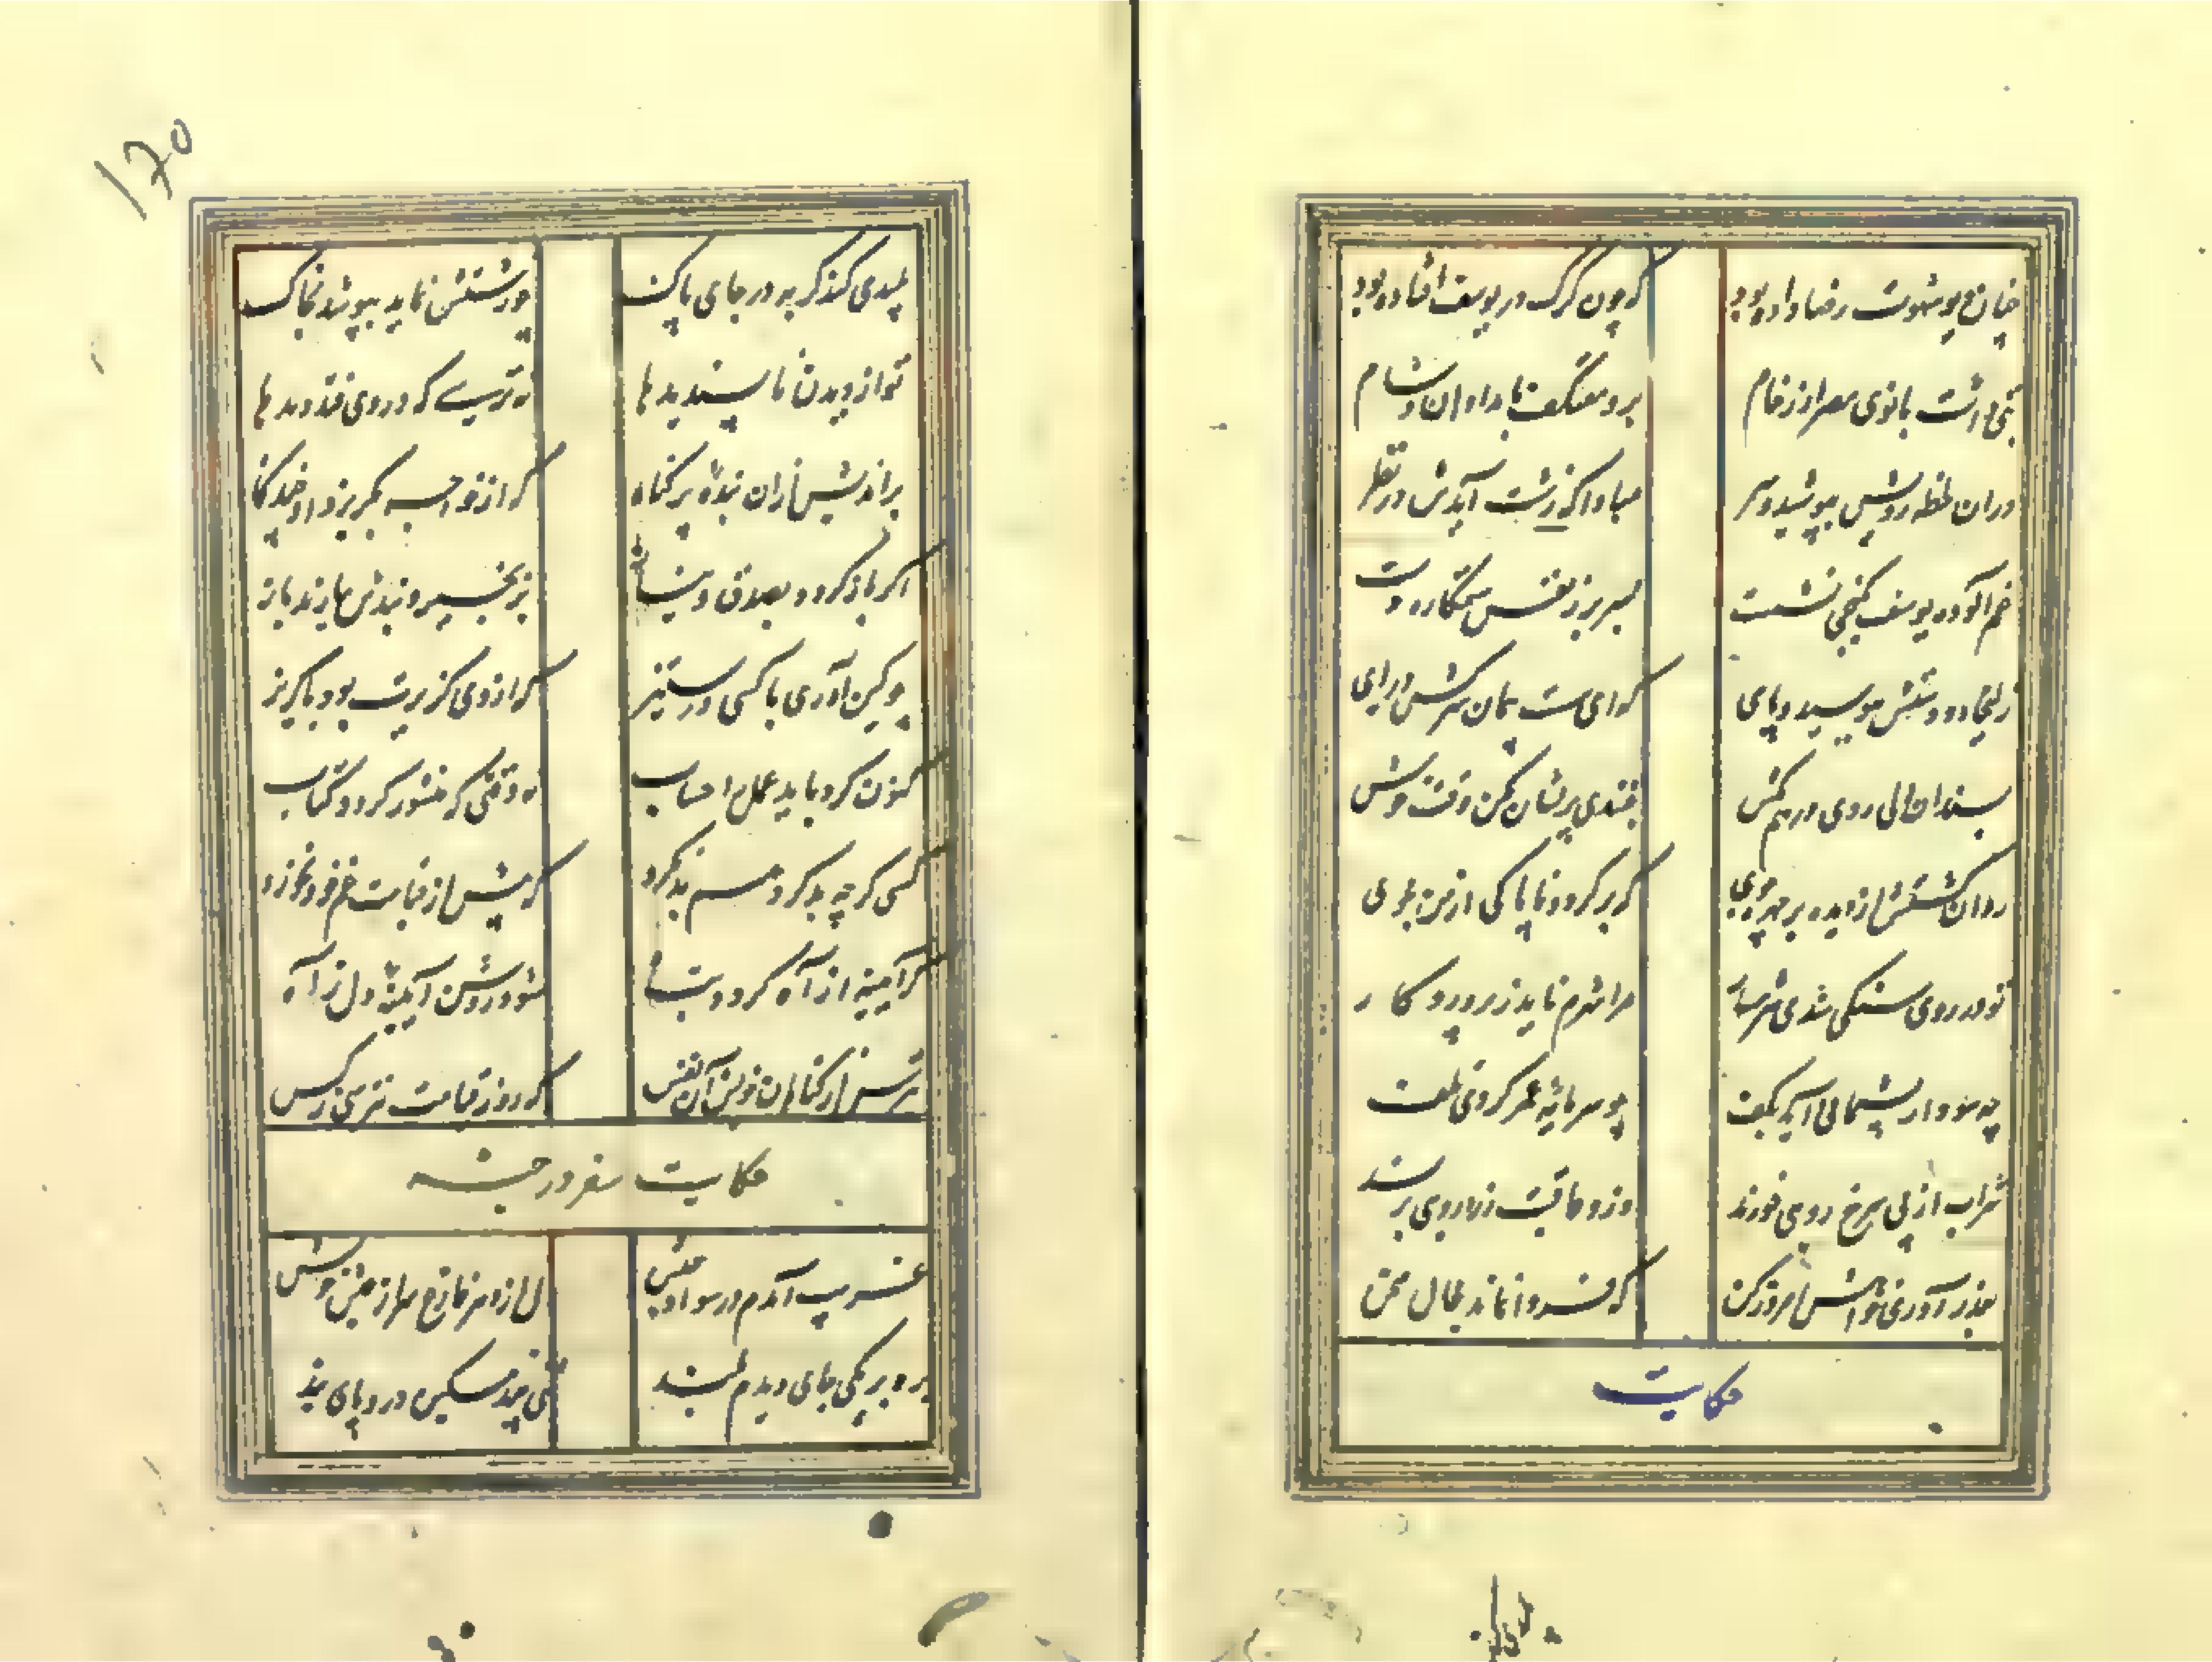 چنان دیو شهوت رضا داده بود
که چون گرگ در یوسف افتاده بود
بتی داشت بانوی مصر از رخام
برو معتکف بامدادان و شام
دران لحظه رویش بپوشید و سر
مبادا که زشت آیدش در نظر
غم آلوده یوسف بکنجی نشست
بسر بر ز نفس ستمکاره دست
زلیخا دو دستش ببوسید و پای
که ای سست پیمان سرکش درای
بسندان دلی روی درهم مکش
بتندی پریشان مکن وقت خوش
روان گشتش از دیده بر چهره جوی
که برگرد و ناپاکی از من مجوی
تو در روی سنگی شدی شرمسار
مرا شرم ناید ز پروردگار
چه سود از پشیمانی آید بکف
چو سرمایهٔ عمر کردی تلف
شراب از پی سرخ رویی خورند
وزو عاقبت زرد رویی برند
بعذر آوری خواهش امروز کن
که فردا نماند مجال سخن
حکایت
پلیدی کند گربه در جای پاک
چو زشتش نماید بپوشد بخاک
تو آزادی از ناپسندیدها
نه ترسی که در وی فتد دیدها
براندیش ازان بندهٔ پرگناه
که از خواجه بگریزد او چندگاه
اگر بازگردد بصدق و نیاز
بزنجیر و بندش نیارند باز
چو کین آوری با کسی در ستیز
که از وی گزیرت بود یا گریز
کنون کرد باید عمل را حساب
نه وقتی که منشور گردد کتاب
کسی گرچه بد کرد هم بد نکرد
که پیش از قیامت غم خود بخورد
گر آیینه از آه گردد سیاه
شود روشن آیینهٔ دل ز آه
بترس از گناهان خویش آن نفس
که روز قیامت نترسی ز کس
حکایت سفر در حبشه
غریب آمدم در سواد حبش
دل از دهر فارغ سر از عیش خوش
بره بر یکی جای دیدم بلند
تنی چند مسکین درو پای بند
۱۷۵